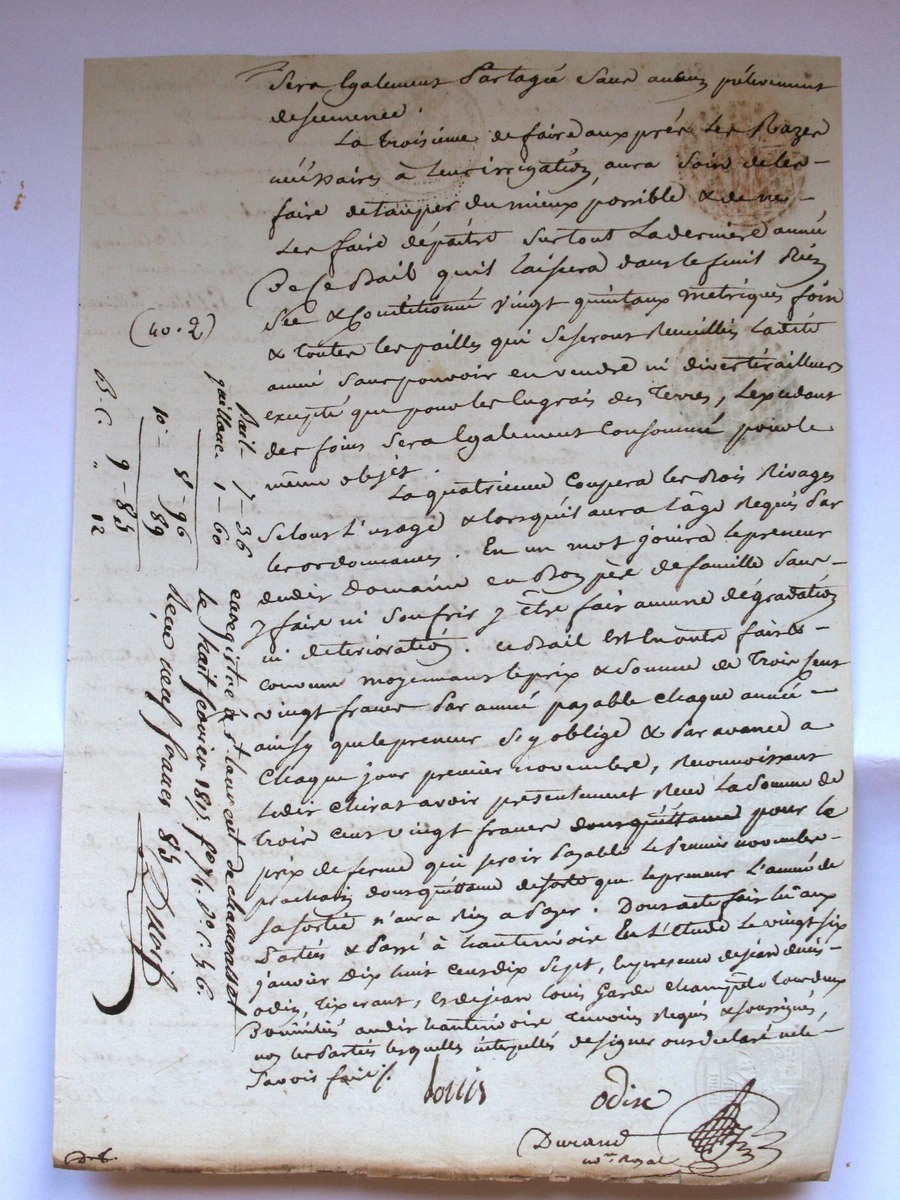 Sera Egalement Partagée Sans aucun prélevement
de semence.
La troisieme de faire aux prés les Razes
nécessaires à leur irrigation, aura soin de les
faire detauper du mieux possible & de ne
les faire dépaître surtout la derniere année
De Ce Bail quil laissera dans le fenil
& Conditionné vingt quintaux metriques foin
& toutes les pailles qui se seront Recueillies ladite
année sans pouvoir en vendre ni divertir ailleurs
excepté que pour les Engrais des Terres, L'excedant
des foins Sera Egalement Consommé pour le
même objet.
La quatrieme Coupera les Bois Rivages
Selon l'usage & lorsqu'il aura l'âge Requis Par
les ordonnances. En un mot jouira le preneur
dudit Domaine en Bon père de famille Sans
y faire ni Soufrir y être fait aucune dégradation
ni déterioration. Ce Bail est En outre fait &
convenu moyennant le prix & Somme de Trois Cent
vingt francs Par année payable Chaque année
ainsy que le preneur S'y oblige & Par avance a
Chaque jour premier novembre, Reconnoissant
ledit Chirat avoir présentement Reçu la Somme de
Trois Cent vingt francs dont quittance pour le
prix de ferme qui seroit Payable le Premier novembre
prochain dont quittance de sorte que le preneur L'année de
sa sortie n'aura Rien a Payer. Dont acte fait lû aux
Parties & Passé à hauterivoire En L'Etude le vingt six
janvier Dix huit Cent dix Sept, En presence de jean denis
odin, tixerant, & de jean louis Garde Champêtre tous deux
Domiciliés audit hauterivoire Temoins Requis & Soussignés,
non les Parties lesquelles interpellés de signer ont declaré ne le
Savoir fait /.
louis
odin
Durand
no.re Royal
(40.2)
Bail 7-36
1-60
8-96
10e 89
9-85
B. C. " 12
enregistré à St. Laurent de chamousset
le huit fevrier 1817 fo. 74. Vo. C. 5. 6.
Reçu neuf francs 85